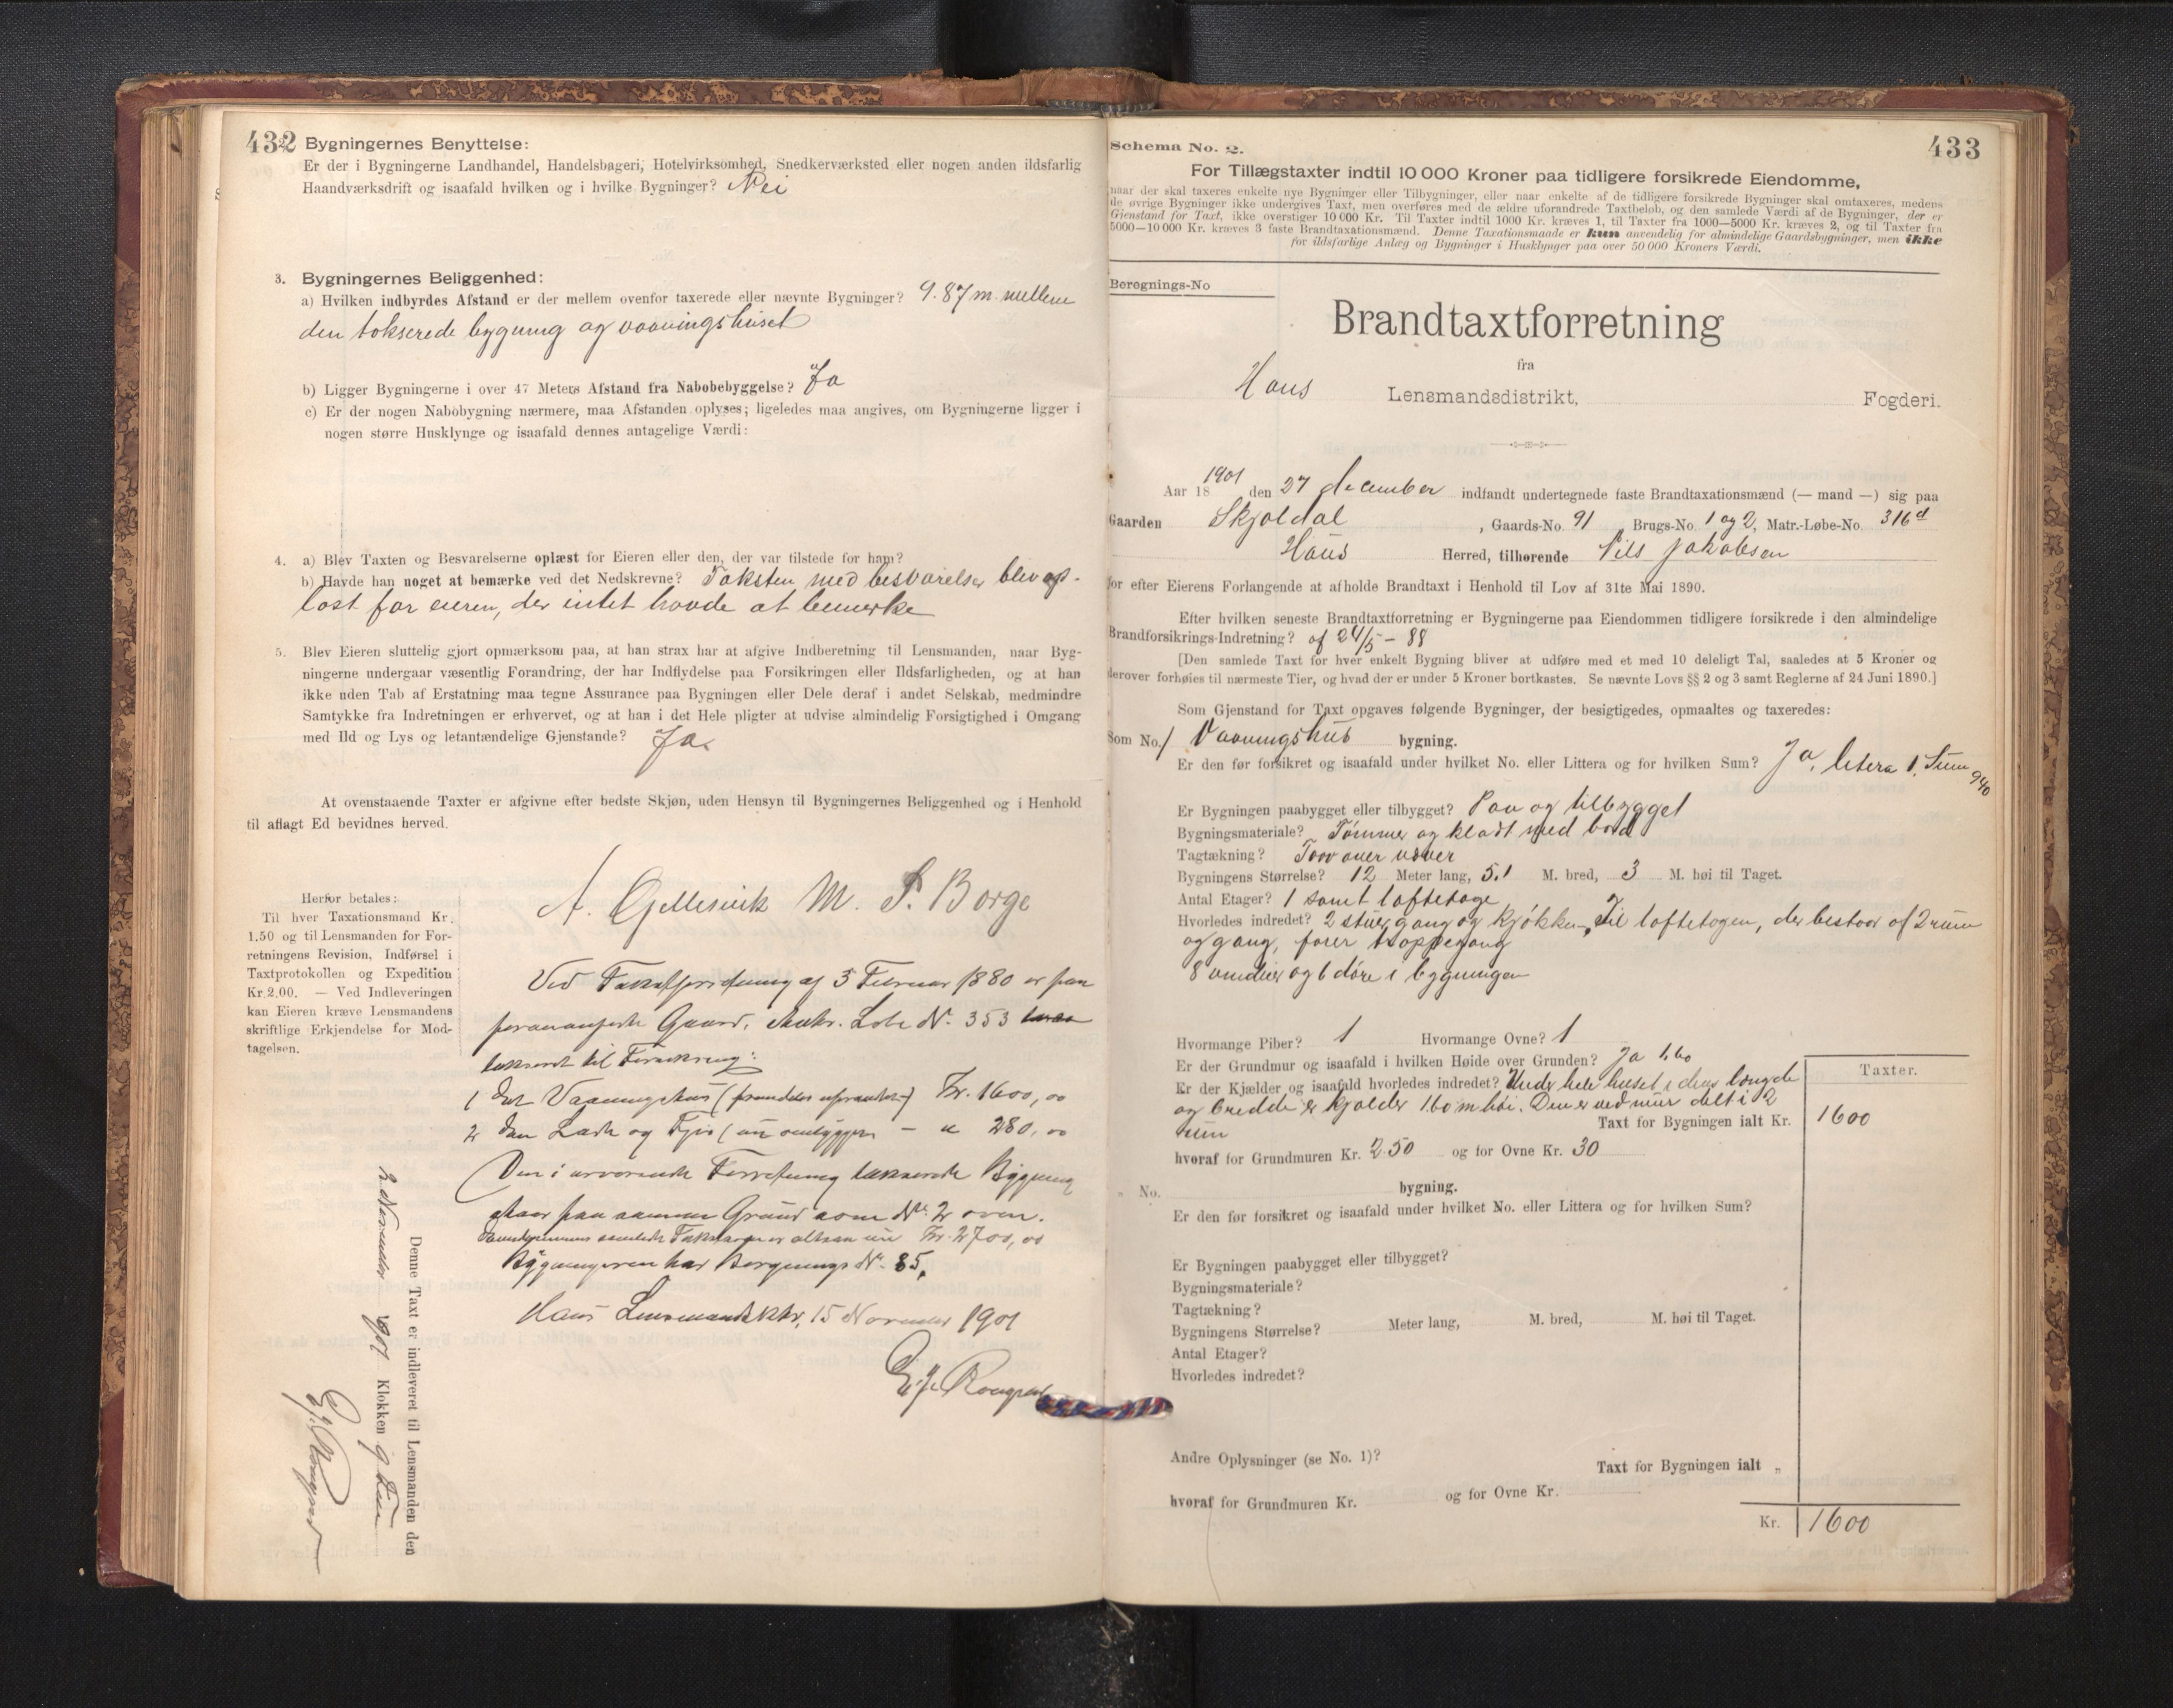 432
Bygningernes Benyttelse:
Er der i Bygningerne Landhandel, Handelsbageri, Hotelvirksomhed, Snedkerværksted eller nogen anden ildsfarlig
Haandværksdrift og isaafald hvilken og i hvilke Bygninger? Nei
3. Bygningernes Beliggenhed:
a) Hvilken indbyrdes Afstand er der mellem ovenfor taxerede eller nævnte Bygninger? 9.87 m mellem
den takserede bygning og vaaningshuset
b) Ligger Bygningerne i over 47 Meters Afstand fra Nabobebyggelse? Ja
c) Er der nogen Nabobygning nærmere, maa Afstanden oplyses; ligeledes maa angives, om Bygningerne ligger i
nogen større Husklynge og isaafald dennes antagelige Værdi:
4. a) Blev Taxten og Besvarelserne oplæst for Eieren eller den, der var tilstede for ham?
b) Havde han noget at bemærke ved det Nedskrevne? Taksten med besvarelse blev op-
læst for eieren, der intet havde at bemerke
5. Blev Eieren sluttelig gjort opmærksom paa, at han strax har at afgive Indberetning til Lensmanden, naar Byg-
ningerne undergaar væsentlig Forandring, der har Indflydelse paa Forsikringen eller Ildsfarligheden, og at han
ikke uden Tab af Erstatning maa tegne Assurance paa Bygningen eller Dele deraf i andet Selskab, medmindre
Samtykke fra Indretningen er erhvervet, og at han i det Hele pligter at udvise almindelig Forsigtighed i Omgang
med Ild og Lys og letantændelige Gjenstande? Ja.
At ovenstaaende Taxter er afgivne efter bedste Skjøn, uden Hensyn til Bygningernes Beliggenhed og i Henhold
til aflagt Ed bevidnes herved.
A. Gjellesvik M. S. Borge
Herfor betales:
Til hver Taxationsmand Kr.
1.50 og til Lensmanden for For-
retningens Revision, Indførsel i
Taxtprotokollen og Expedition
Kr. 2.00. — Ved Indleveringen
kan Eieren kræve Lensmandens
skriftlige Erkjendelse for Mod-
tagelsen.
Ved Takstforretning af 3 Februar 1880 er paa
forananførte Gaard, Matr. Løbe No. 353
takseret til Forsikring:
1 Det Vaaningshus Kr. 1600,00
2 Den Lade og Fjøs 280,00
Den i nærværende Forretning takserede Bygning
staar paa samme Grund som No. 2 oven.
Eiendommens samlede Takstsum er altsaa nu Kr. 2700,00
Bygningerne har Beregnings No. 85.
Haus Lensmandsktr, 15 November 1901
Denne Taxt er indleveret til Lensmanden den
2 November 1901 Klokken 9
Schema No. 2.
433
For Tillægstaxter indtil 10 000 Kroner paa tidligere forsikrede Eiendomme,
naar der skal taxeres enkelte nye Bygninger eller Tilbygninger, eller naar enkelte af de tidligere forsikrede Bygninger skal omtaxeres, medens
de øvrige Bygninger ikke undergives Taxt, men overføres med de ældre uforandrede Taxtbeløb, og den samlede Værdi af de Bygninger, der er
Gjenstand for Taxt, ikke overstiger 10 000 Kr. Til Taxter indtil 1000 Kr. kræves 1, til Taxter fra 1000—5000 Kr. kræves 2, og til Taxter fra
5000—10 000 Kr. kræves 3 faste Brandtaxationsmænd. Denne Taxationsmaade er kun anvendelig for almindelige Gaardsbygninger, men ikke
for ildsfarlige Anlæg og Bygninger i Husklynger paa over 50 000 Kroners Værdi.
Beregnings-No
Brandtaxtforretning
fra
Haus Lensmandsdistrikt, Fogderi.
Aar 18 1901 den 27 december indfandt undertegnede faste Brandtaxationsmænd (— mand —) sig paa
Gaarden Skjoldal, Gaards-No. 91 Brugs-No. 1 og 2, Matr.-Løbe-No. 316d
Haus Herred, tilhørende Nils Jakobsen
for efter Eierens Forlangende at afholde Brandtaxt i Henhold til Lov af 31te Mai 1890.
Efter hvilken seneste Brandtaxtforretning er Bygningerne paa Eiendommen tidligere forsikrede i den almindelige
Brandforsikrings-Indretning? af 24/5 - 88
[Den samlede Taxt for hver enkelt Bygning bliver at udføre med et med 10 deleligt Tal, saaledes at 5 Kroner og
derover forhøies til nærmeste Tier, og hvad der er under 5 Kroner bortkastes. Se nævnte Lovs §§ 2 og 3 samt Reglerne af 24 Juni 1890.]
Som Gjenstand for Taxt opgaves følgende Bygninger, der besigtigedes, opmaaltes og taxeredes:
Som No. 1 Vaaningshus bygning.
Er den før forsikret og isaafald under hvilket No. eller Littera og for hvilken Sum? Ja, litera 1, Sum 940
Er Bygningen paabygget eller tilbygget? Paa og tilbygget
Bygningsmateriale? Tømmer og klædt med bord
Tagtækning? Torv over næver
Bygningens Størrelse? 12 Meter lang, 5.1 M. bred, 3 M. høi til Taget.
Antal Etager? 1 samt loftetage
Hvorledes indredet? 2 stuer, gang og kjøkken. Til loftetagen, der bestaar af 2 rum
og gang, fører trappegang
8 vinduer og 6 døre i bygningen
Hvormange Piber? 1 Hvormange Ovne? 1
Er der Grundmur og isaafald i hvilken Høide over Grunden? Ja 1.60
Er der Kjælder og isaafald hvorledes indredet? Under hele huset i dens længde
og bredde er kjælder 1.60 m høi. Den er ved mur delt i 2
rum
Taxter.
Taxt for Bygningen ialt Kr. 1600
hvoraf for Grundmuren Kr. 250 og for Ovne Kr. 30
„ No. bygning.
Er den før forsikret og isaafald under hvilket No. eller Littera og for hvilken Sum?
Er Bygningen paabygget eller tilbygget?
Bygningsmateriale?
Tagtækning?
Bygningens Størrelse? Meter lang, M. bred, M. høi til Taget.
Antal Etager?
Hvorledes indredet?
Andre Oplysninger (se No. 1)?
Taxt for Bygningen ialt „
hvoraf for Grundmuren Kr. og for Ovne Kr.
Kr. 1600